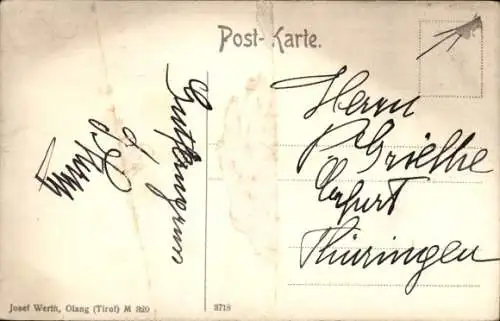 Post-Karte.
Herrn
P Griethe
Erfurt
Thüringen
Josef Werth, Olang (Tirol) M 320
3718